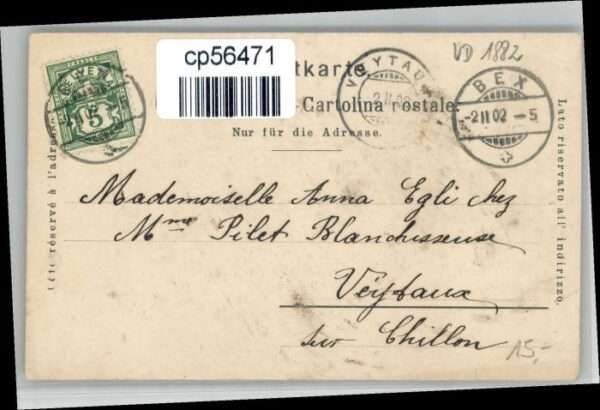 cp56471
VD 1882
tkarte
Cartolina postale.
Nur für die Adresse.
VEYTAU
BEX
-2 II 02 -5
5
Côté réservé à l'adresse
Lato riservato all' indirizzo.
Mademoiselle Anna Egli chez
Mme Pilet Blanchisseuse
Veytaux
sur Chillon
15.-